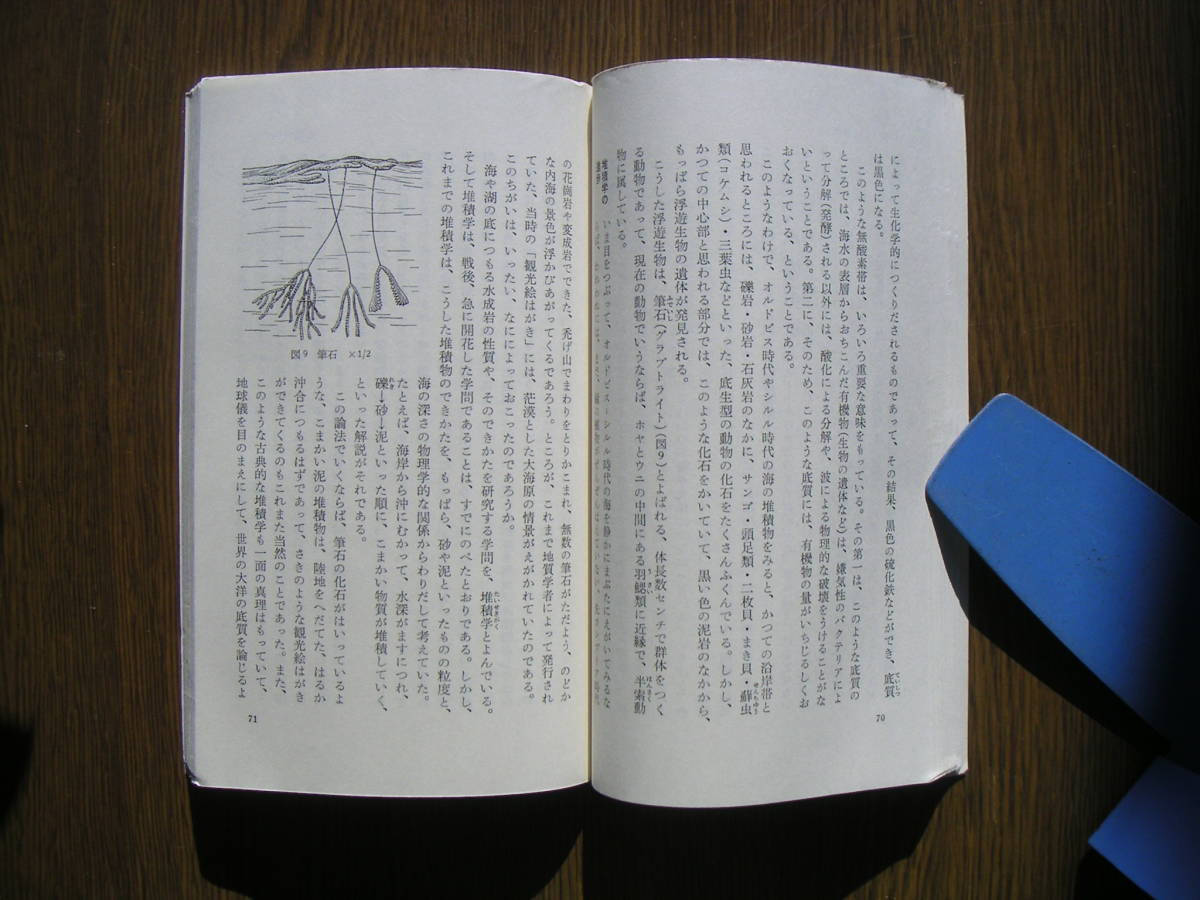 によって生化学的につくりだされるものであって、その結果、黒色の硫化鉄などができ、底質
ていしつ
は黒色になる。
このような無酸素帯は、いろいろ重要な意味をもっている。その第一は、このような底質の
ところでは、海水の表層からおちこんだ有機物(生物の遺体など)は、嫌気性のバクテリアによ
って分解(発酵)される以外には、酸化による分解や、波による物理的な破壊をうけることがな
いということである。第二に、そのため、このような底質には、有機物の量がいちじるしくお
おくなっている、ということである。
このようなわけで、オルドビス時代やシルル時代の海の堆積物をみると、かつての沿岸帯と
思われるところには、礫岩・砂岩・石灰岩のなかに、サンゴ・頭足類・二枚貝・まき貝・蘚虫
せんちゅう
類(コケムシ)・三葉虫などといった、底生型の動物の化石をたくさんふくんでいる。しかし、
かつての中心部と思われる部分では、このような化石をかいていて、黒い色の泥岩のなかから、
もっぱら浮遊生物の遺体が発見される。
こうした浮遊生物は、筆石(グラプトライト)(図9)とよばれる、体長数センチで群体をつく
る動物であって、現在の動物でいうならば、ホヤとウニの中間にある羽鰓類に近縁で、半索動
うさい
はんさく
物に属している。
堆積学の
いま目をつぶって、オルドビスーシルル時代の海を静かにまぶたにえがいてみるな
70
の花崗岩や変成岩でできた、禿げ山でまわりをとりかこまれ、無数の筆石がただよう、のどか
な内海の景色が浮かびあがってくるであろう。ところが、これまで地質学者によって発行され
ていた、当時の「観光絵はがき」には、茫漠とした大海原の情景がえがかれていたのである。
このちがいは、いったい、なにによっておこったのであろうか。
海や湖の底につもる水成岩の性質や、そのできかたを研究する学問を、堆積学とよんでいる。
たいせきがく
そして堆積学は、戦後、急に開花した学問であることは、すでにのべたとおりである。しかし、
これまでの堆積学は、こうした堆積物のできかたを、もっぱら、砂や泥といったものの粒度と、
海の深さの物理学的な関係からわりだして考えていた。
たとえば、海岸から沖にむかって、水深がますにつれ、
礫→砂→泥といった順に、こまかい物質が堆積していく、
れき
といった解説がそれである。
この論法でいくならば、筆石の化石がはいっているよ
うな、こまかい泥の堆積物は、陸地をへだてた、はるか
沖合につもるはずであって、さきのような観光絵はがき
ができてくるのもこれまた当然のことであった。また、
このような古典的な堆積学も一面の真理はもっていて、
地球儀を目のまえにして、世界の大洋の底質を論じるよ
図9 筆石 ×1/2
71